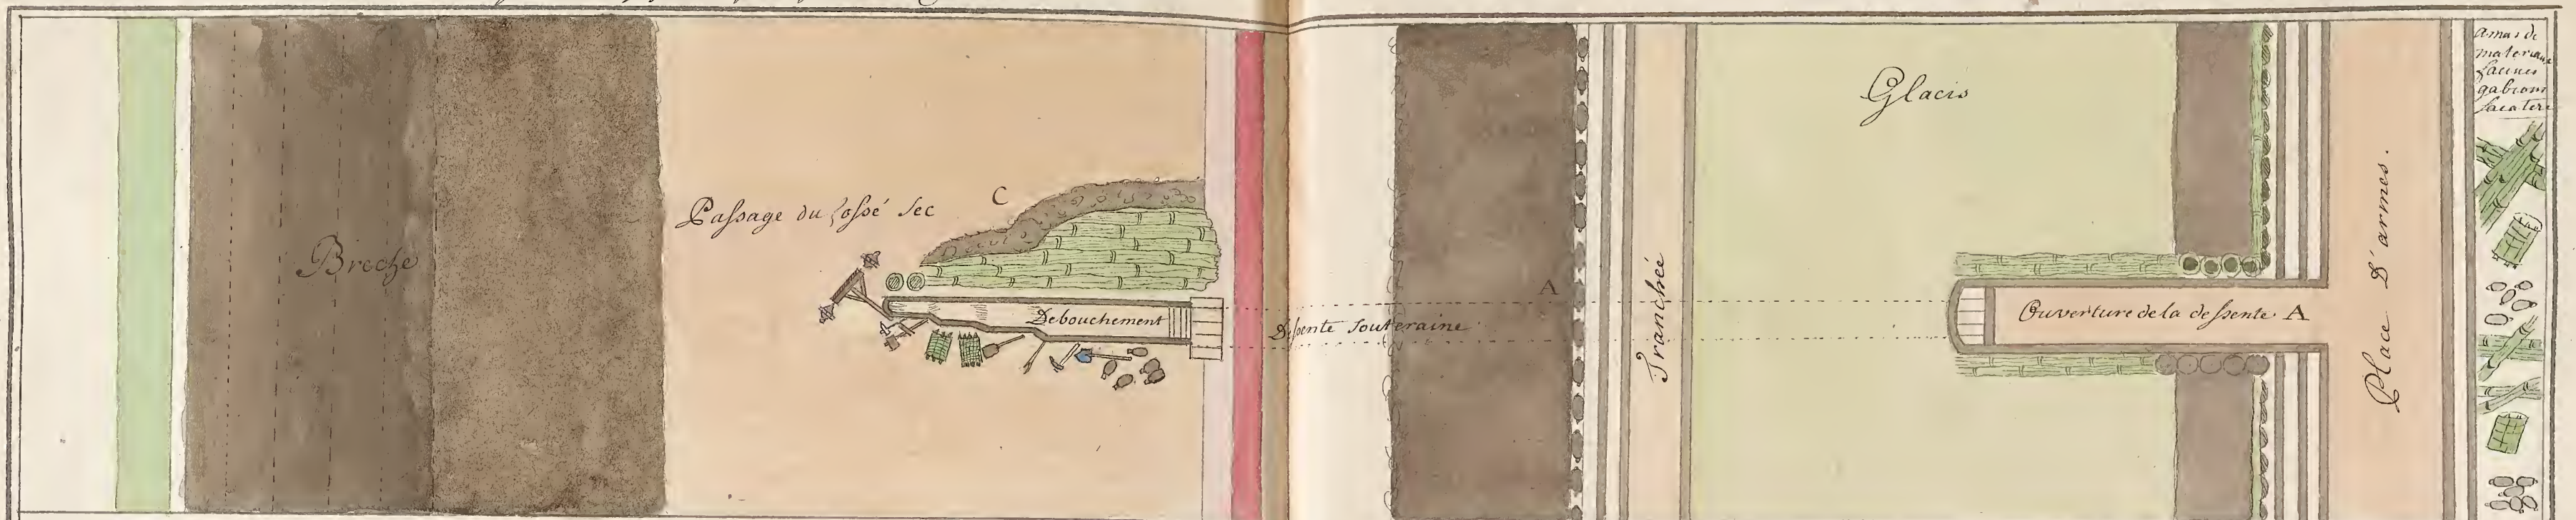 Breche
Passage du fossé sec
C
Debouchement
Dessente souteraine
A
Tranchée
Glacis
Ouverture de la dessente A
Place D'armes.
amas de
materiaux
gabions